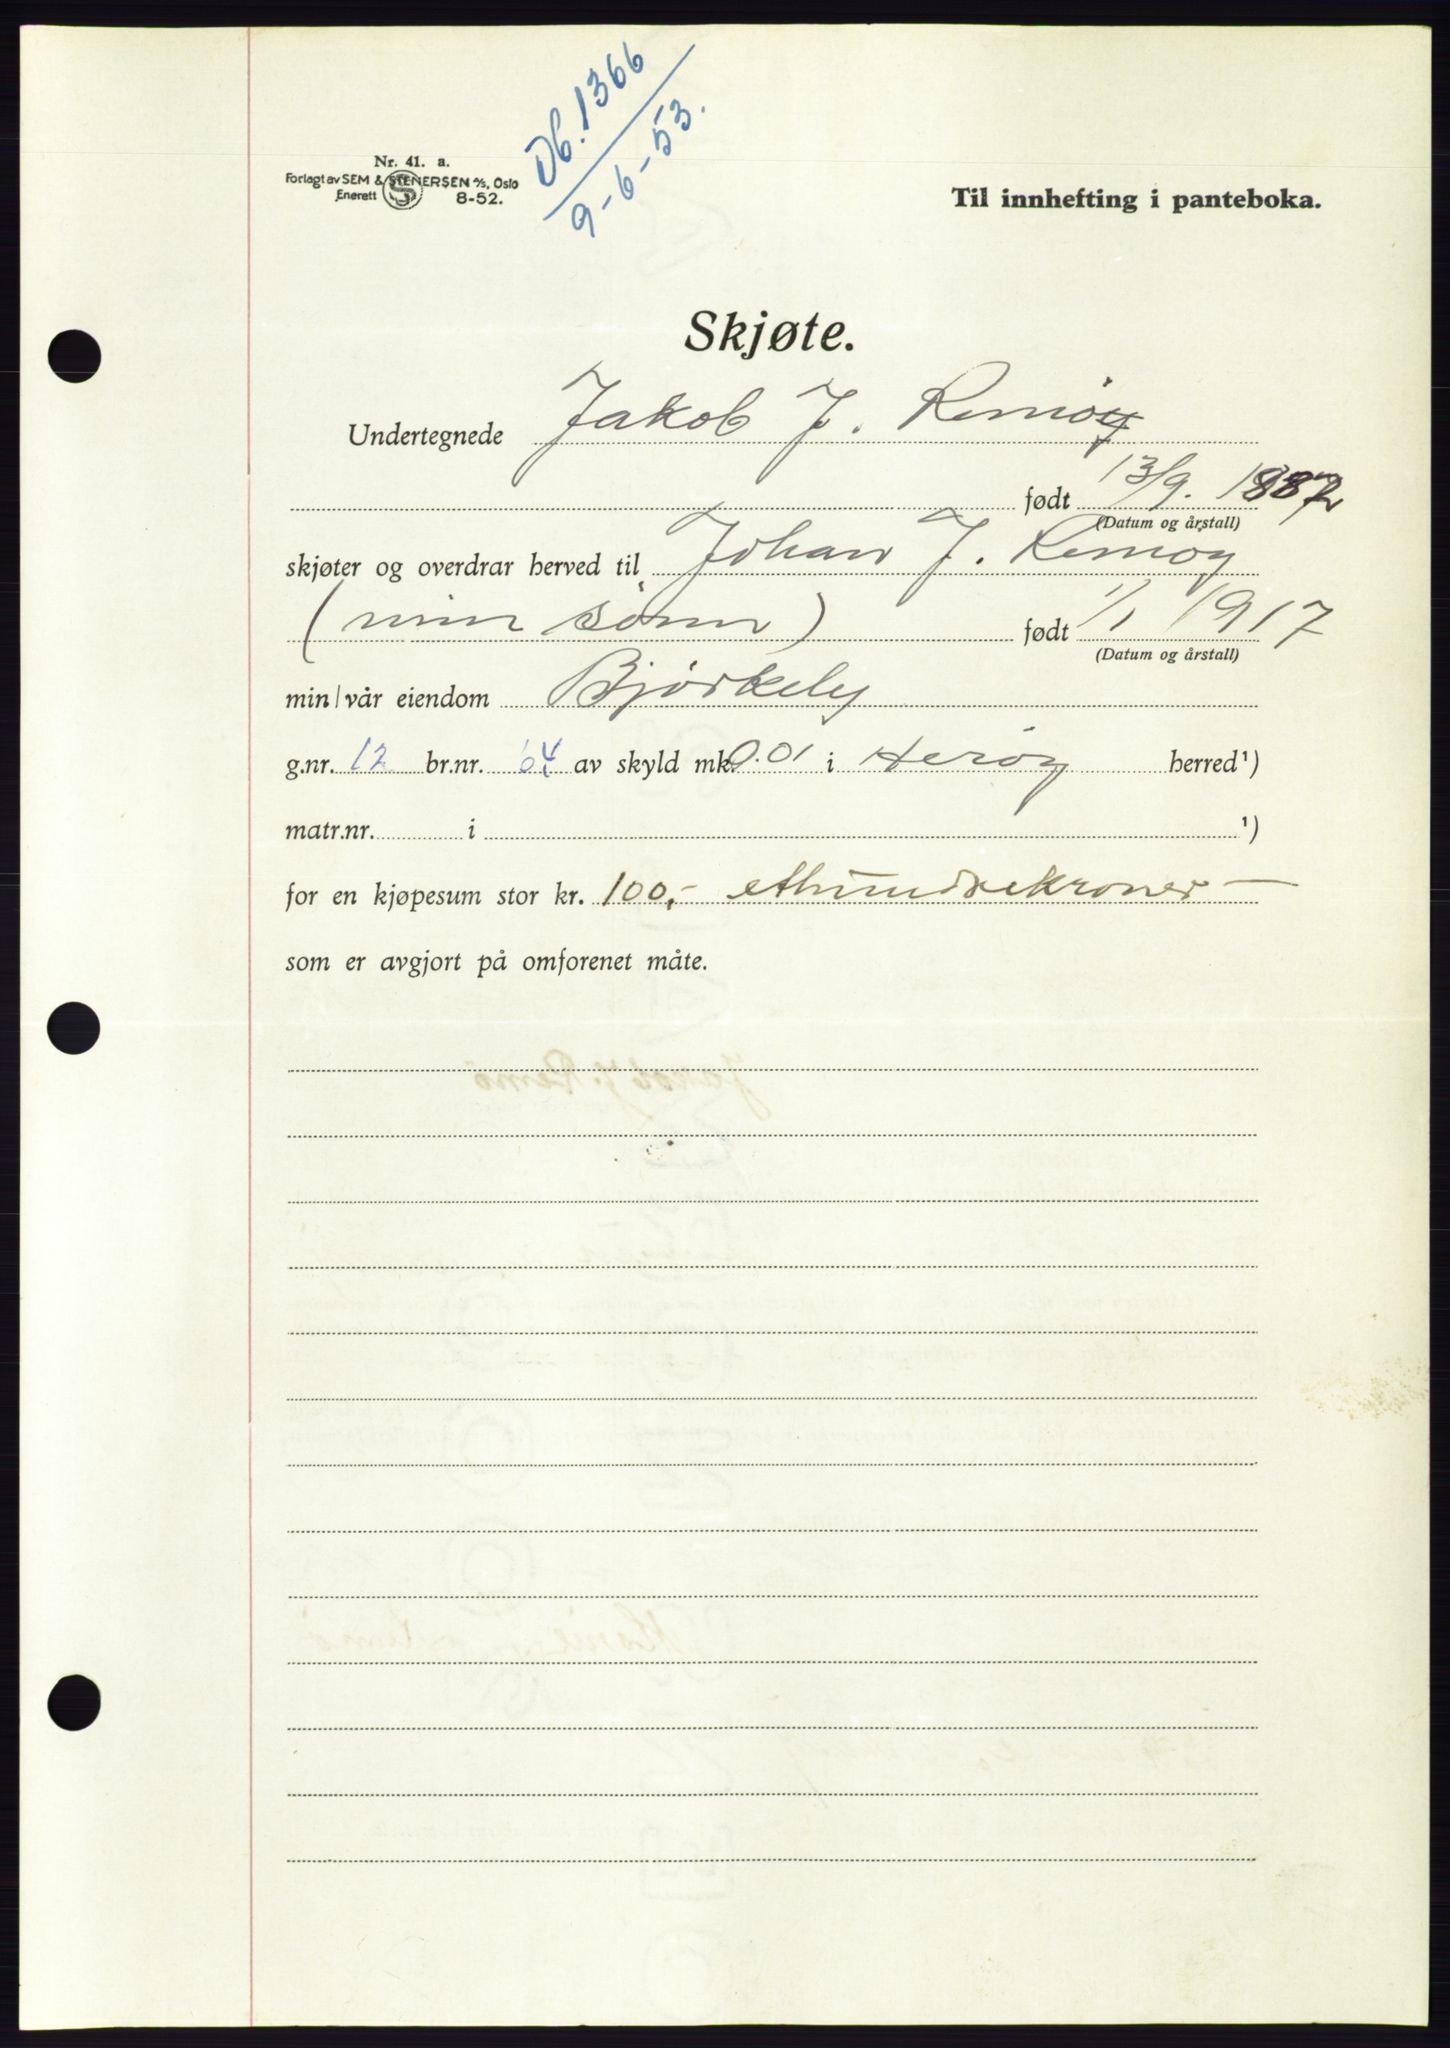 Db. 1366
9-6-53.
Nr. 41. a.
Forlagt av SEM & STENERSEN A/S, Oslo
Enerett S 8-52.
Til innhefting i panteboka.
Skjøte.
Undertegnede Jakob J. Remøy
født 13/9. 1887
(Datum og årstall)
skjøter og overdrar herved til Johan J. Remøy
(min sønn) født 1/1 1917
(Datum og årstall)
min/vår eiendom Bjørkely
g.nr. 12 br.nr. 64 av skyld mk. 0.01 i Herøy herred¹)
matr.nr. i ¹)
for en kjøpesum stor kr. 100,- ethundrekroner —
som er avgjort på omforenet måte.